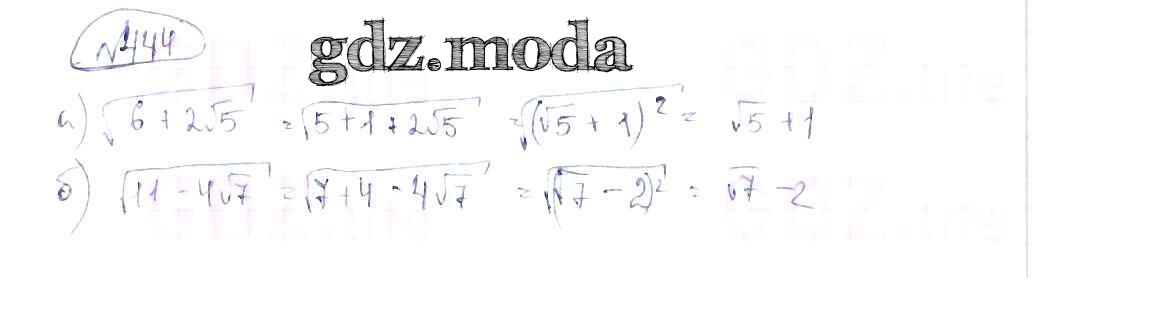 №444
gdz.moda
а) √(6 + 2√5) = √(5 + 1 + 2√5) = √((√5 + 1)²) = √5 + 1
б) √(11 - 4√7) = √(7 + 4 - 4√7) = √((√7 - 2)²) = √7 - 2